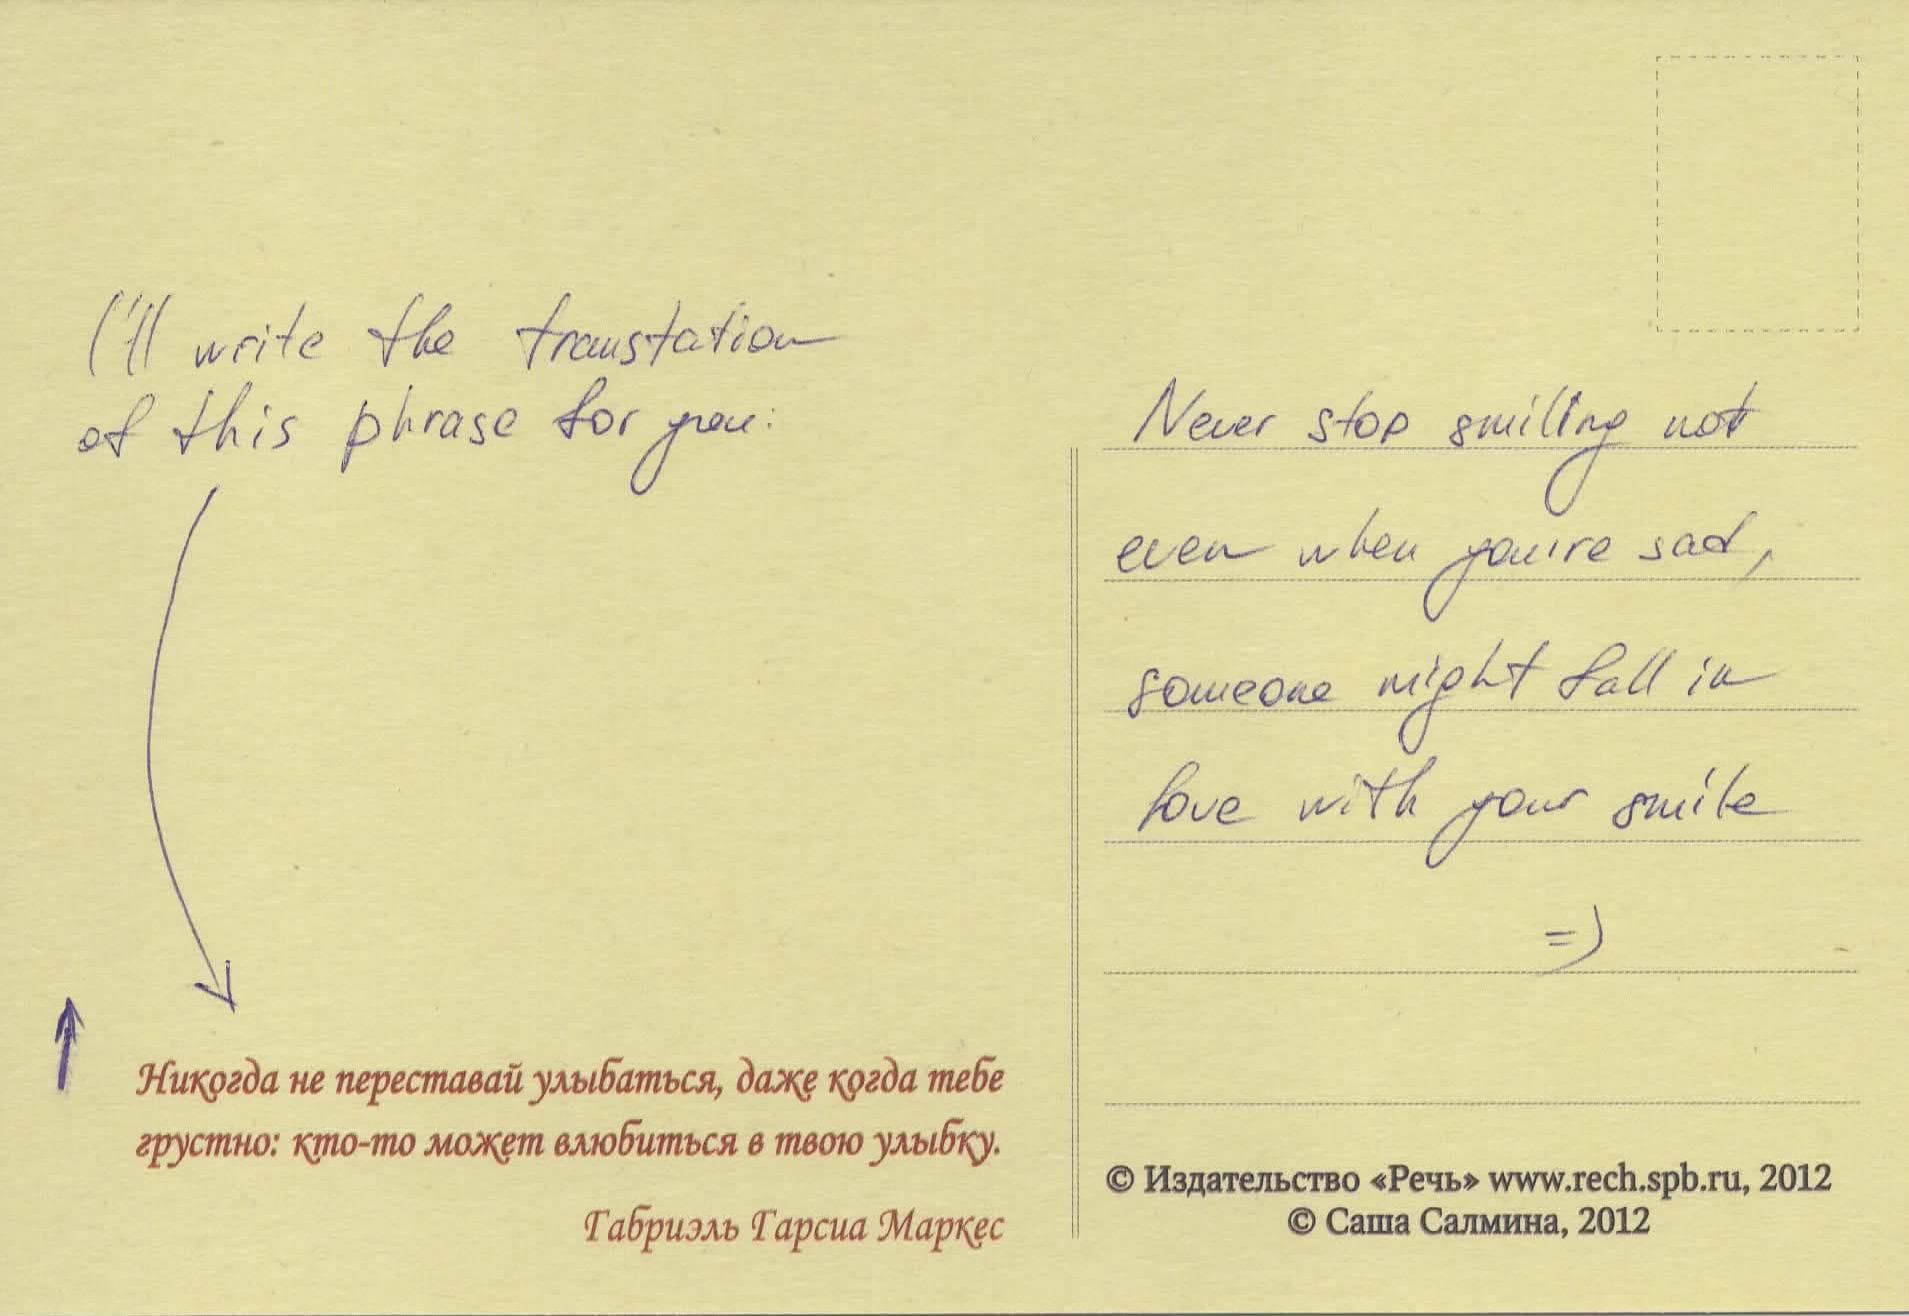 I'll write the translation
of this phrase for you:
Никогда не переставай улыбаться, даже когда тебе
грустно: кто-то может влюбиться в твою улыбку.
Габриэль Гарсиа Маркес
Never stop smiling not
even when you're sad,
someone might fall in
love with your smile
=)
© Издательство «Речь» www.rech.spb.ru, 2012
© Саша Салмина, 2012